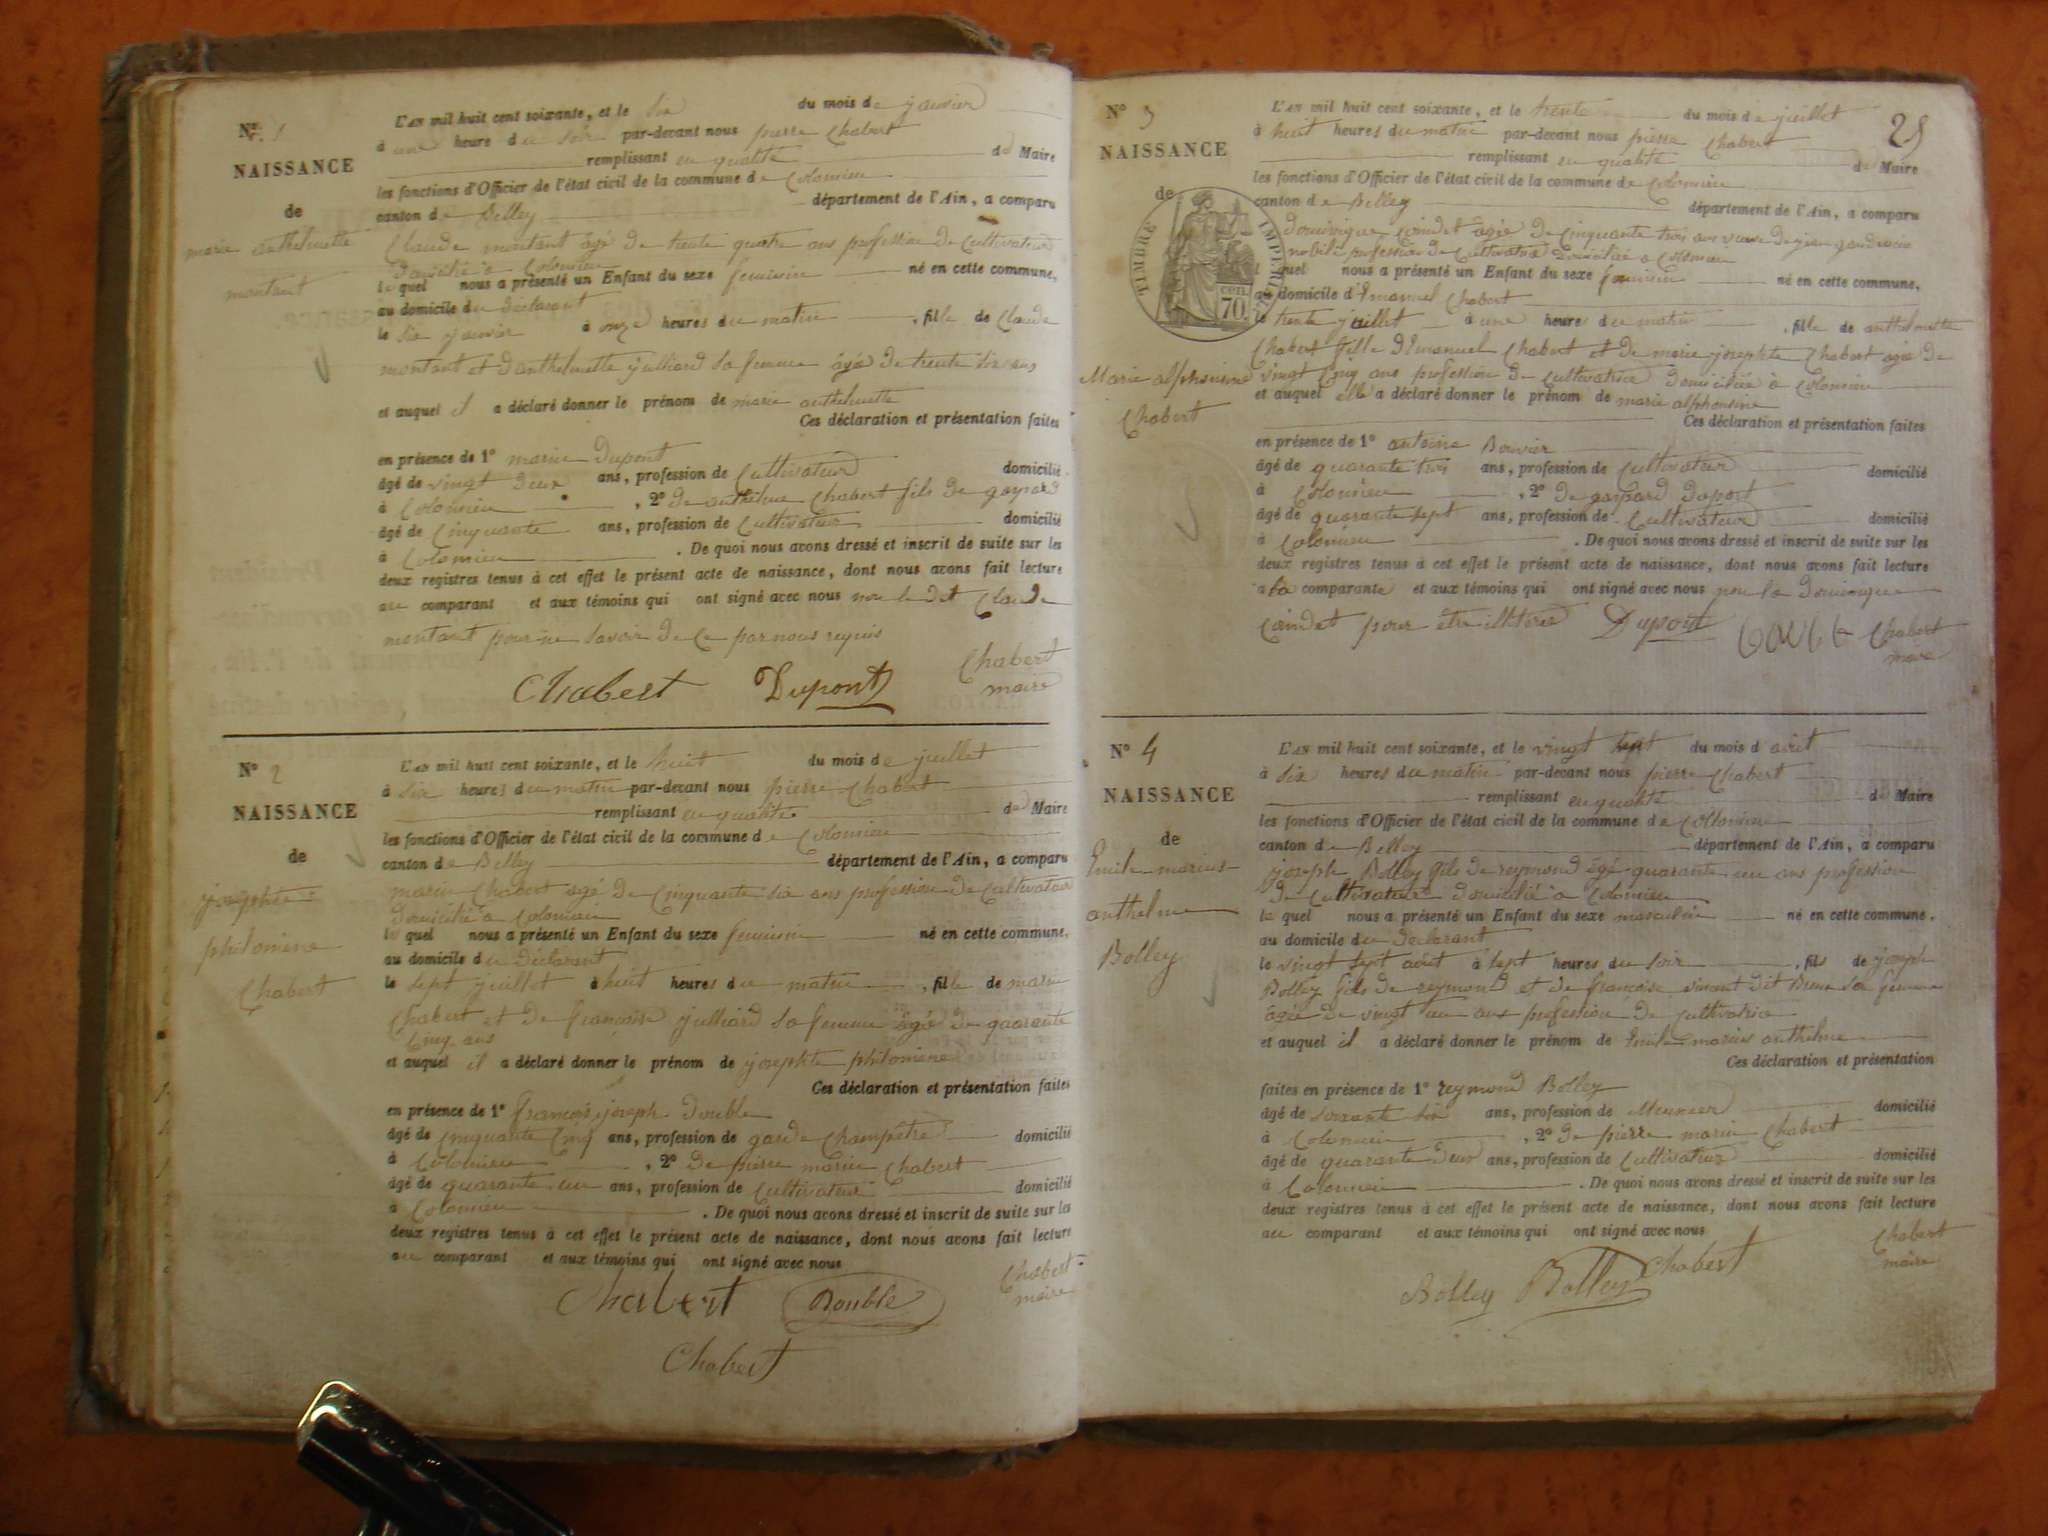 N° 1
NAISSANCE
de
marie anthelmette
montant
L'AN mil huit cent soixante, et le six du mois de janvier
à une heure du soir par-devant nous pierre Chabert
remplissant en qualité de Maire
les fonctions d'Officier de l'état civil de la commune de Colomieu
canton de Belley département de l'Ain, a comparu
Claude montant âgé de trente quatre ans profession de Cultivateur
domicilié à Colomieu
le quel nous a présenté un Enfant du sexe feminin né en cette commune,
au domicile du Déclarant
le six janvier à onze heures du matin, fille de Claude
montant et d'anthelmette julliard sa femme âgée de trente six ans
et auquel il a déclaré donner le prénom de marie anthelmette
Ces déclaration et présentation faites
en présence de 1° marin Dupont
âgé de vingt deux ans, profession de Cultivateur domicilié
à Colomieu, 2° de anthelme Chabert fils de gaspard
âgé de Cinquante ans, profession de Cultivateur domicilié
à Colomieu. De quoi nous avons dressé et inscrit de suite sur les
deux registres tenus à cet effet le présent acte de naissance, dont nous avons fait lecture
au comparant et aux témoins qui ont signé avec nous non le dit Claude
montant pour ne savoir de ce par nous requis
Chabert Dupont Chabert
maire
N° 2
NAISSANCE
de
josephte
philomène
Chabert
L'AN mil huit cent soixante, et le huit du mois de juillet
à six heures du matin par-devant nous pierre Chabert
remplissant en qualité de Maire
les fonctions d'Officier de l'état civil de la commune de Colomieu
canton de Belley département de l'Ain, a comparu
marin Chabert agé de Cinquante six ans profession de Cultivateur
domicilié à Colomieu
le quel nous a présenté un Enfant du sexe feminin né en cette commune,
au domicile du Déclarant
le sept juillet à huit heures du matin, fille de marin
Chabert et de françoise julliard sa femme âgé de quarante
Cinq ans
et auquel il a déclaré donner le prénom de josephte philomène
Ces déclaration et présentation faites
en présence de 1° françois joseph Double
âgé de Cinquante Cinq ans, profession de garde Champêtre domicilié
à Colomieu, 2° de pierre marin Chabert
âgé de quarante un ans, profession de Cultivateur domicilié
à Colomieu. De quoi nous avons dressé et inscrit de suite sur les
deux registres tenus à cet effet le présent acte de naissance, dont nous avons fait lecture
au comparant et aux témoins qui ont signé avec nous
Chabert Double Chabert
maire
Chabert
25
N° 3
NAISSANCE
de
TIMBRE IMPERIAL
70 cen.
Marie alphonsine
Chabert
L'AN mil huit cent soixante, et le trente du mois de juillet
à huit heures du matin par-devant nous pierre Chabert
remplissant en qualité de Maire
les fonctions d'Officier de l'état civil de la commune de Colomieu
canton de Belley département de l'Ain, a comparu
Cindet agée de Cinquante trois ans veuve de jean
profession de Cultivatrice domiciliée à Colomieu
l quel nous a présenté un Enfant du sexe feminin né en cette commune,
au domicile d'Emanuel Chabert
le trente juillet à une heures du matin, fille de anthelmette
Chabert fille d'Emanuel Chabert et de marie josephte Chabert agée de
vingt Cinq ans profession de Cultivatrice domiciliée à Colomieu
et auquel elle a déclaré donner le prénom de marie alphonsine
Ces déclaration et présentation faites
en présence de 1° antoine Bouvier
âgé de quarante trois ans, profession de Cultivateur domicilié
à Colomieu, 2° de gaspard Dupont
âgé de quarante sept ans, profession de Cultivateur domicilié
à Colomieu. De quoi nous avons dressé et inscrit de suite sur les
deux registres tenus à cet effet le présent acte de naissance, dont nous avons fait lecture
a la comparante et aux témoins qui ont signé avec nous non la
Cindet pour être illiterée Dupont Chabert
maire
N° 4
NAISSANCE
de
Emile marius
anthelme
Bolley
L'AN mil huit cent soixante, et le vingt sept du mois d août
à six heures du matin par-devant nous pierre Chabert
remplissant en qualité de Maire
les fonctions d'Officier de l'état civil de la commune de Collomieu
canton de Belley département de l'Ain, a comparu
joseph Bolley fils de reymond âgé quarante un ans profession
de Cultivateur domicilié à Colomieu
le quel nous a présenté un Enfant du sexe masculin né en cette commune,
au domicile du Déclarant
le vingt sept août à sept heures du soir, fils de joseph
Bolley fils de reymond et de françoise vincent dit sa femme
âgée de vingt un ans profession de cultivatrice
et auquel il a déclaré donner le prénom de Emile marius anthelme
Ces déclaration et présentation
faites en présence de 1° reymond Bolley
âgé de soixante six ans, profession de Meunier domicilié
à Colomieu, 2° de pierre marin Chabert
âgé de quarante deux ans, profession de Cultivateur domicilié
à Colomieu. De quoi nous avons dressé et inscrit de suite sur les
deux registres tenus à cet effet le présent acte de naissance, dont nous avons fait lecture
au comparant et aux témoins qui ont signé avec nous
Bolley Bolley Chabert Chabert
maire